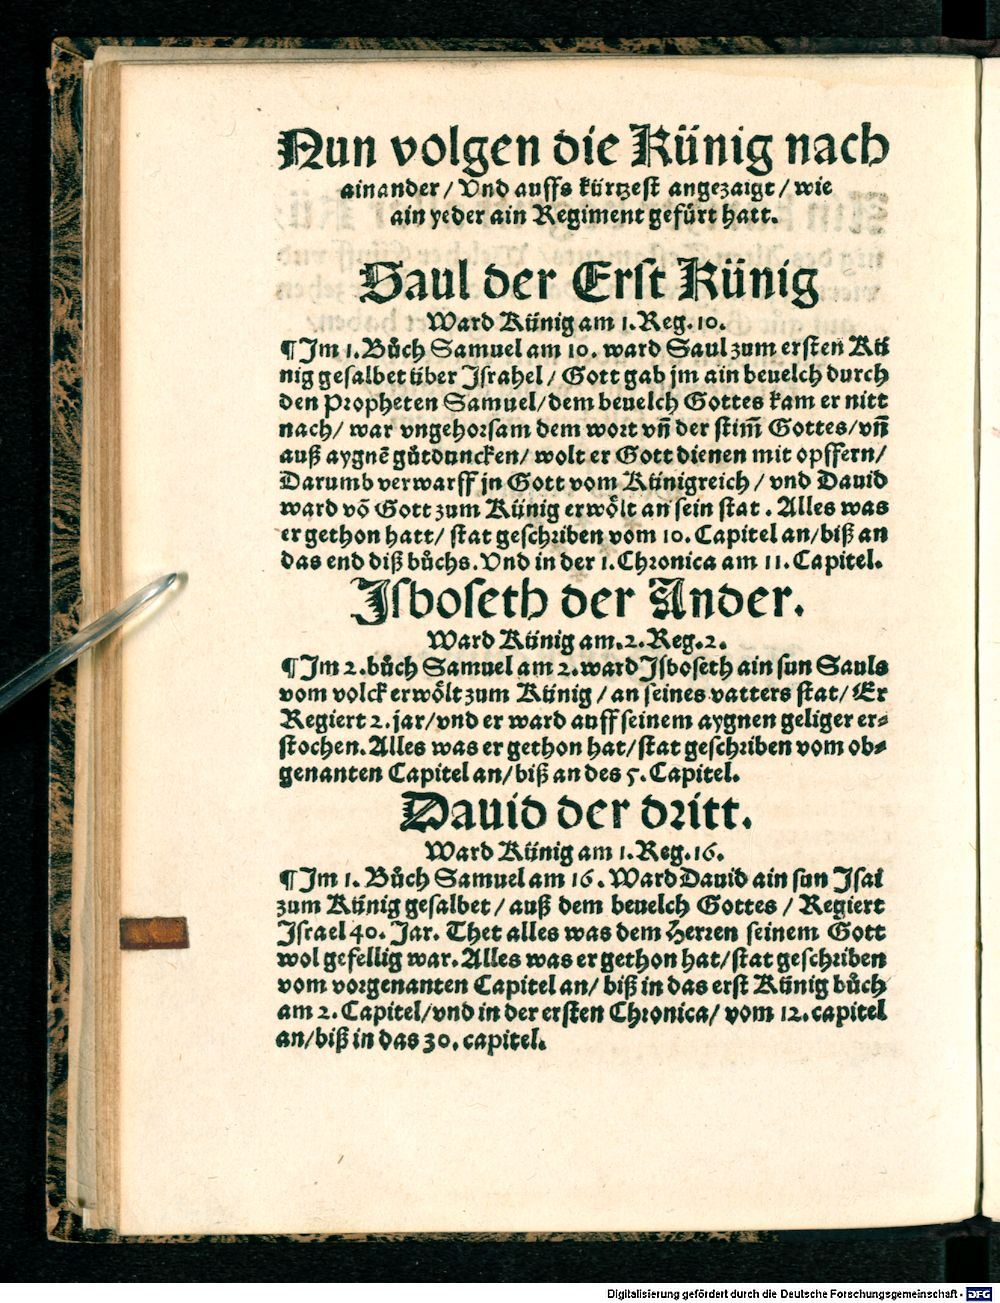 Nun volgen die Künig nach
ainander / Vnd auffs kürtzest angezaigt / wie
ain yeder ain Regiment gefürt hatt.
Saul der Erst Künig
Ward Künig am 1. Reg. 10.
¶ Im 1. Bůch Samuel am 10. ward Saul zum ersten Kü
nig gesalbet über Israhel / Gott gab jm ain beuelch durch
den Propheten Samuel / dem beuelch Gottes kam er nitt
nach / war vngehorsam dem wort vñ der stim̃ Gottes / vñ
auß aygnẽ gůtduncken / wolt er Gott dienen mit opffern /
Darumb verwarff jn Gott vom Künigreich / vnd Dauid
ward võ Gott zum Künig erwoͤlt an sein stat . Alles was
er gethon hatt / stat geschriben vom 10. Capitel an / biß an
das end diß bůchs. Vnd in der 1. Chronica am 11. Capitel.
Isboseth der Ander.
Ward Künig am. 2. Reg. 2.
¶ Im 2. bůch Samuel am 2. ward Isboseth ain sun Sauls
vom volck erwoͤlt zum Künig / an seines vatters stat / Er
Regiert 2. jar / vnd er ward auff seinem aygnen geliger er⸗
stochen. Alles was er gethon hat / stat geschriben vom ob⸗
genanten Capitel an / biß an des 5. Capitel.
Dauid der dritt.
Ward Künig am 1. Reg. 16.
¶ Im 1. Bůch Samuel am 16. Ward Dauid ain sun Isai
zum Künig gesalbet / auß dem beuelch Gottes / Regiert
Israel 40. Jar. Thet alles was dem Herren seinem Gott
wol gefellig war. Alles was er gethon hat / stat geschriben
vom vorgenanten Capitel an / biß in das erst Künig bůch
am 2. Capitel / vnd in der ersten Chronica / vom 12. capitel
an / biß in das 30. capitel.
Digitalisierung gefördert durch die Deutsche Forschungsgemeinschaft - DFG